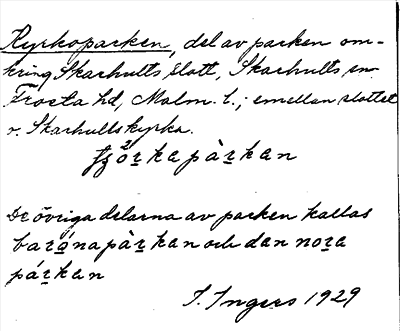 Kyrkoparken, del av parken om-
kring Skarhults slott, Skarhults sn
Frosta hd, Malm. l.; emellan slottet
o. Skarhults kyrka.
pàrkan
De övriga delarna av parken kallas
barónapàrkan och dan nora
párkan
I. Ingers 1929